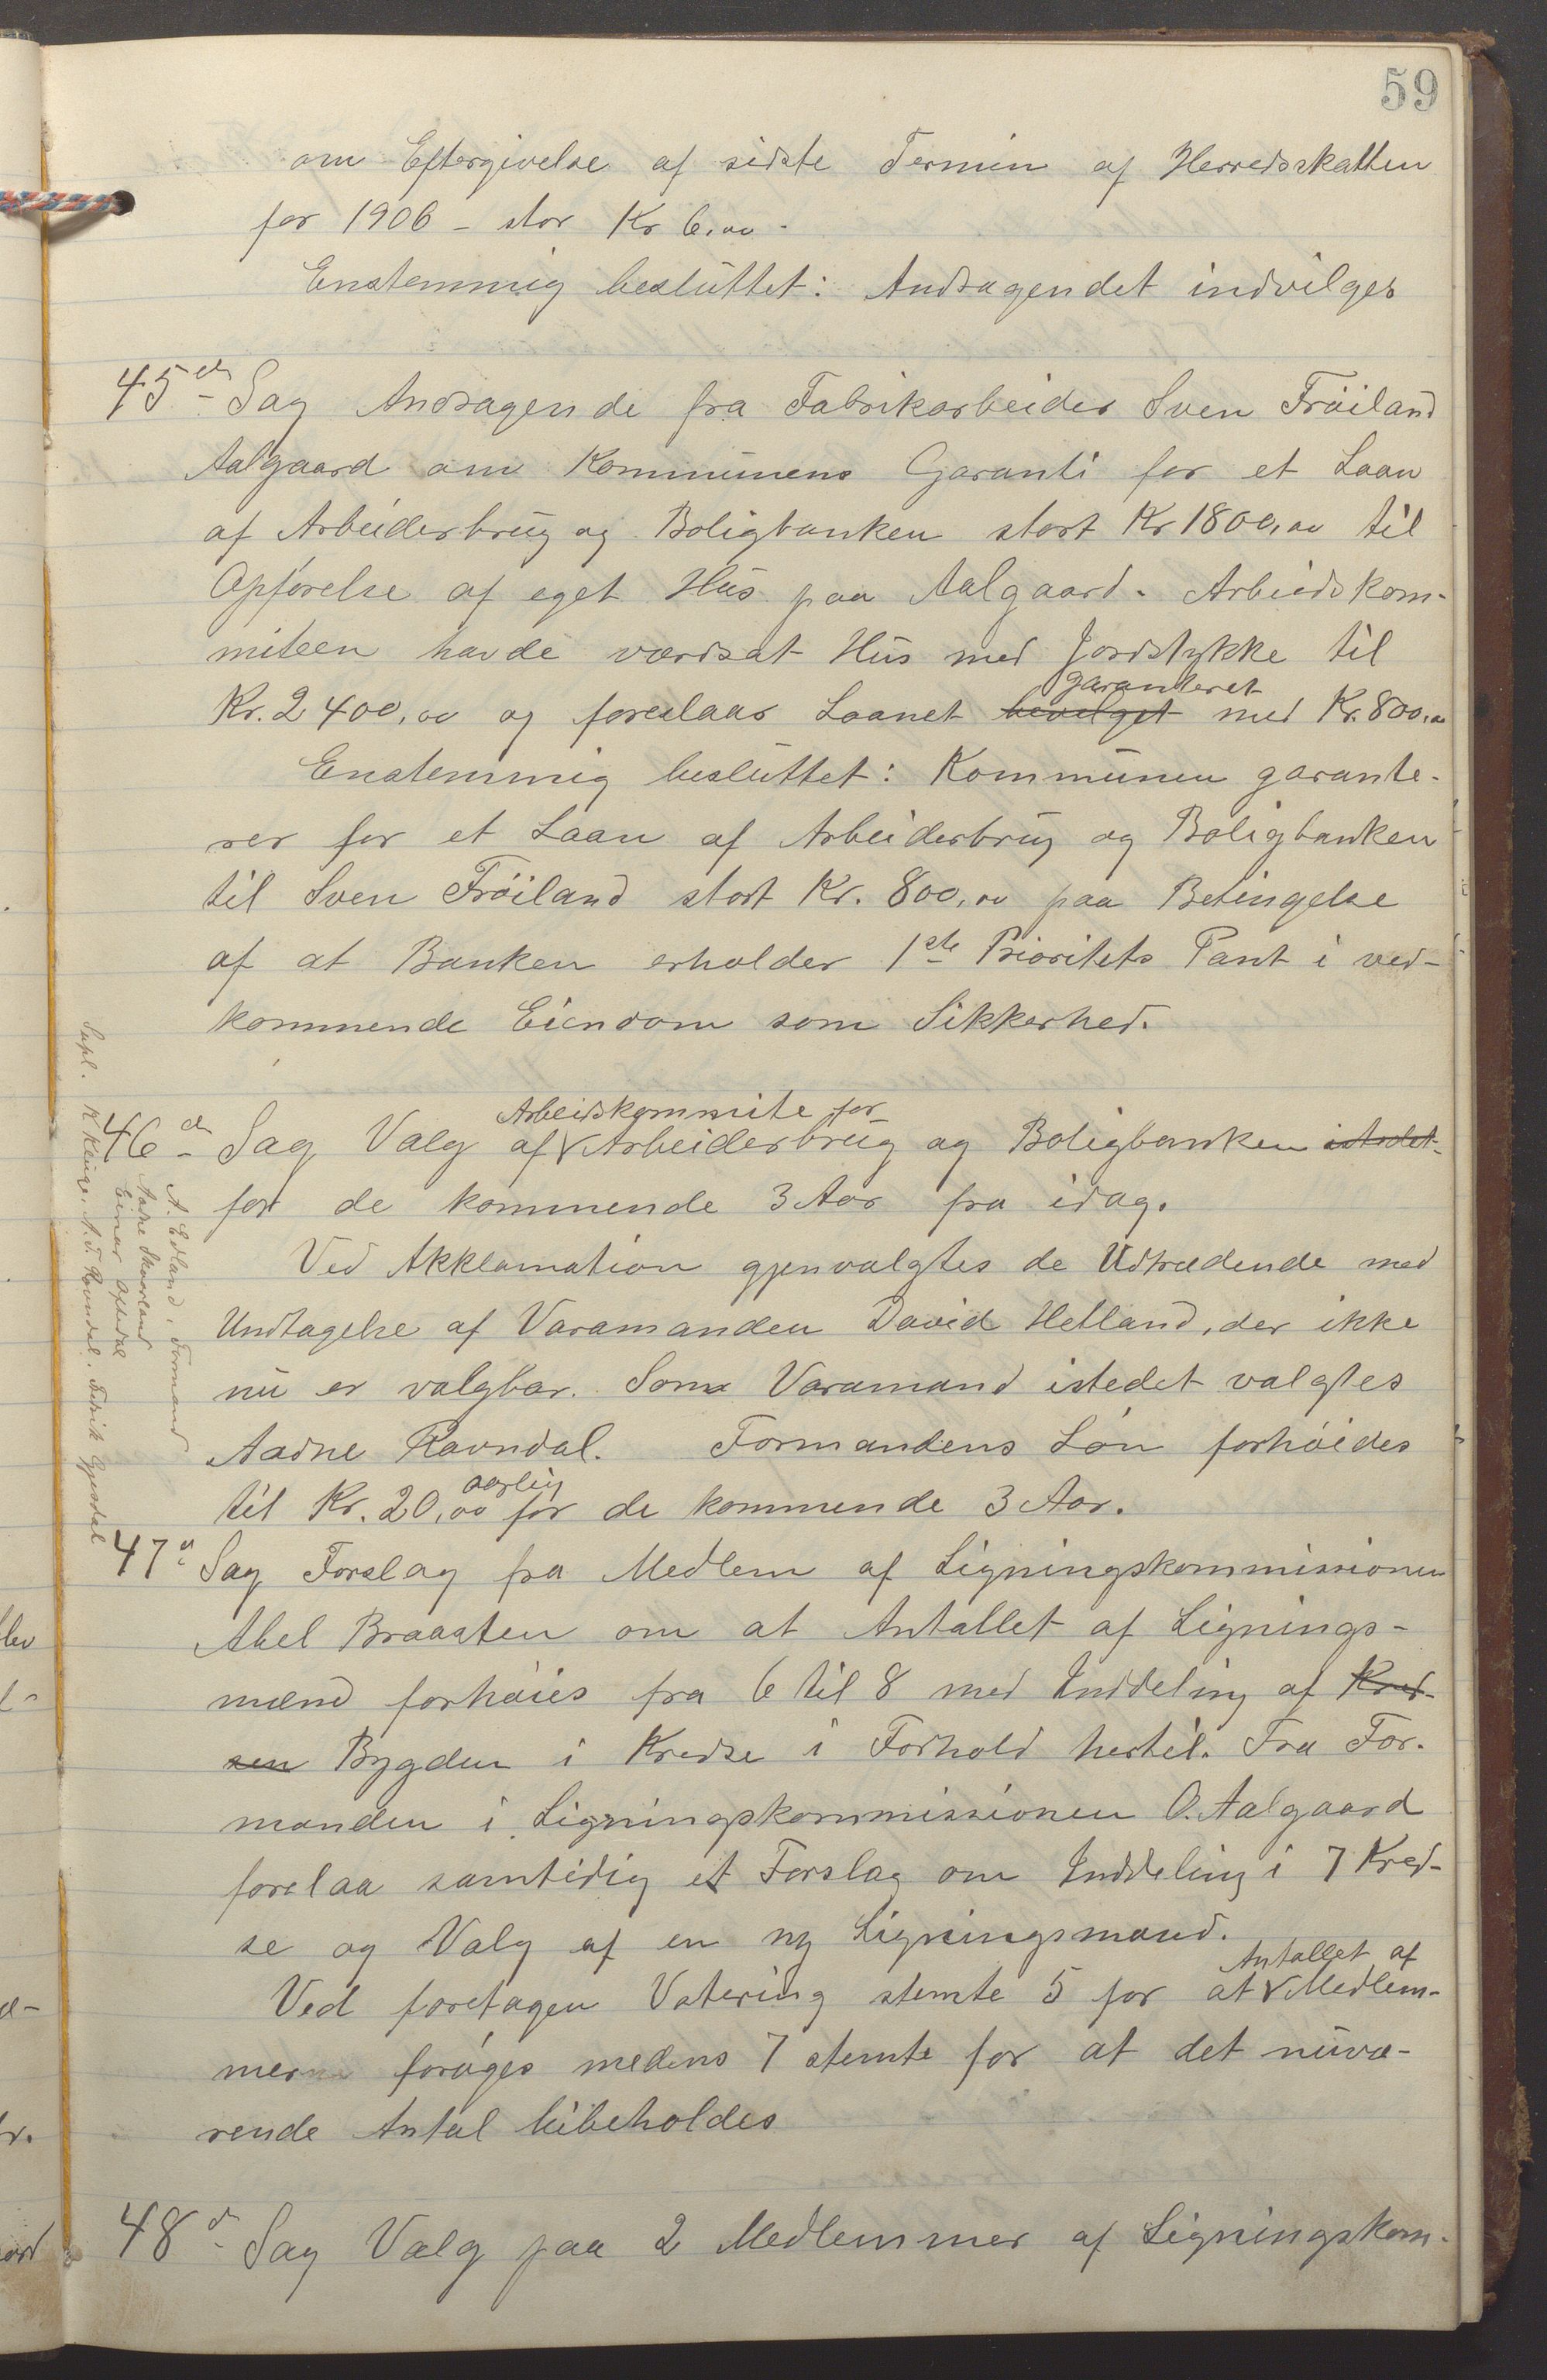 59
om Eftergivelse af sidste Termin af Herredsskatten
for 1906 - stor Kr 6,00.
Enstemmig besluttet: Andragendet indvilges
45de Sag Andragende fra Fabrikarbeider Sven Fröiland
Aalgaard om Kommunens Garanti for et Laan
af Arbeiderbrug og Boligbanken stort Kr 1800,00 til
Opførelse af eget Hus paa Aalgaard. Arbeidskom-
miteen havde værdsat Hus med Jordstykke til
garanteret
Kr. 2400,00 og foreslaar Laanet bevilget med Kr. 800,00
Enstemmig besluttet: Kommunen garante-
rer for et Laan af Arbeiderbrug og Boligbanken
til Sven Fröiland stort Kr. 800,00 paa Betingelse
af at Banken erholder 1ste Prioritets Pant i ved-
kommende Eiendom som Sikkerhed.
Arbeidskommite for
46de Sag Valg af Arbeiderbrug og Boligbanken istedet-
for de kommende 3 Aar fra idag.
Ved Akklamation gjenvalgtes de Udtrædende med
Undtagelse af Varamanden David Helland, der ikke
nu er valgbar. Som Varamand istedet valgtes
Aadne Ravndal. Formandens Løn forhöides
aarlig
til Kr. 20,00 for de kommende 3 Aar.
A. Edland, Formand
Aadne Skurland
Einar Oftedal
Supl. K Kluge. A. T. Ravndal. Fredrik Gjesdal
47de Sag Forslag fra Medlem af Ligningskommissionen
Abel Braasten om at Antallet af Lignings-
mænd forhöies fra 6 til 8 med Inddeling af Kred-
sen Bygden i Kredse i Forhold hertil. Fra For-
manden i Ligningskommissionen O. Aalgaard
forelaa samtidig et Forslag om Inddeling i 7 Kred-
se og Valg af en ny Ligningsmand.
Antallet af
Ved foretagen Votering stemte 5 for at Medlem-
merne forøges medens 7 stemte for at det nuvæ-
rende Antal bibeholdes
48de Sag Valg paa 2 Medlemmer af Ligningskom-